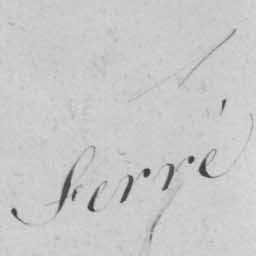 Ferré